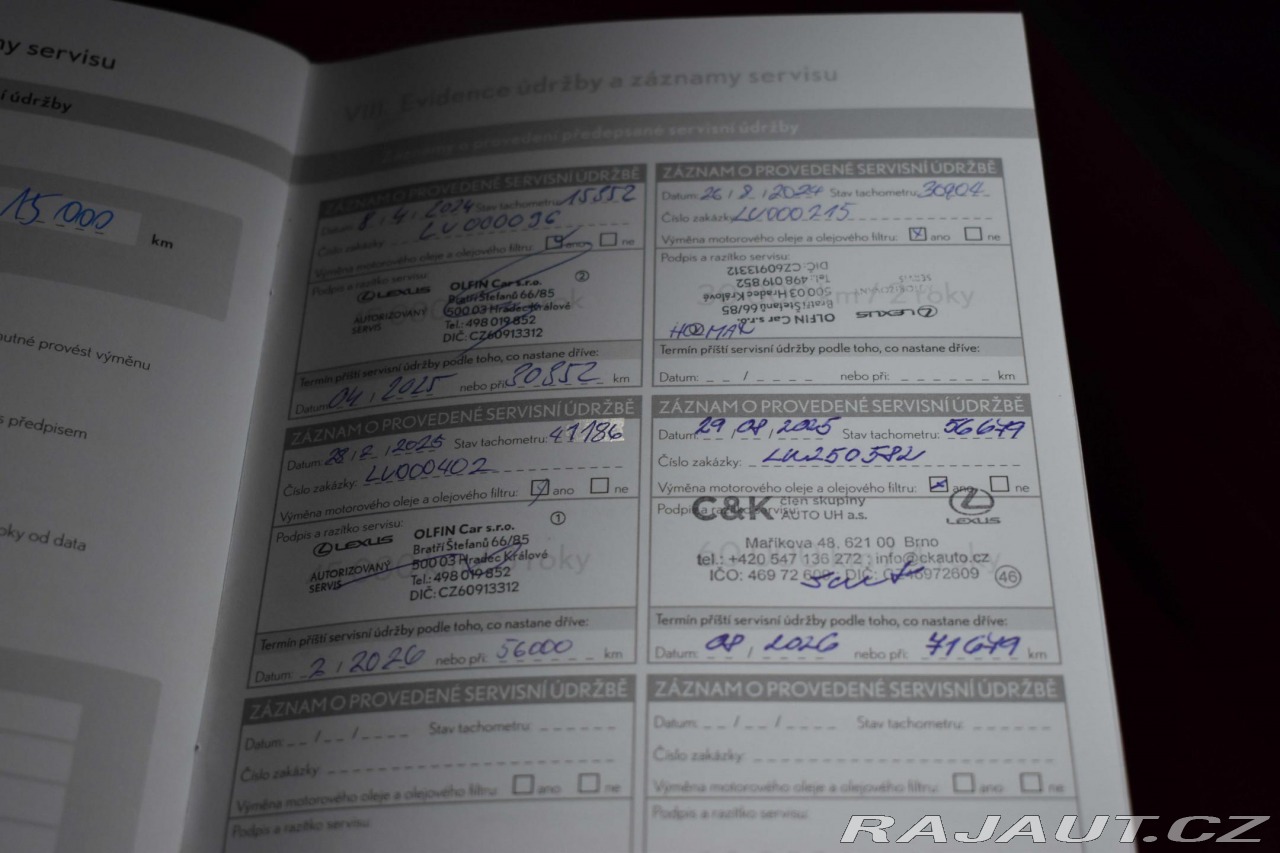 y servisu
í údržby
15 000 km
nutné provést výměnu
s předpisem
oky od data
VIII. Evidence údržby a záznamy servisu
Záznamy o provedení předepsané servisní údržby
ZÁZNAM O PROVEDENÉ SERVISNÍ ÚDRŽBĚ
Datum: 8 / 4 / 2024 Stav tachometru: 15852
Číslo zakázky: LV000096
Výměna motorového oleje a olejového filtru: ano ne
Podpis a razítko servisu:
2
LEXUS
AUTORIZOVANÝ
SERVIS
OLFIN Car s.r.o.
Bratří Štefanů 66/85
500 03 Hradec Králové
Tel.: 498 019 852
DIČ: CZ60913312
Termín příští servisní údržby podle toho, co nastane dříve:
Datum: 04 / 2025 nebo při: 30852 km
ZÁZNAM O PROVEDENÉ SERVISNÍ ÚDRŽBĚ
Datum: 26 / 8 / 2024 Stav tachometru: 30904
Číslo zakázky: LV000215
Výměna motorového oleje a olejového filtru: x ano ne
Podpis a razítko servisu:
DIČ: CZ60913312
Tel.: 498 019 852
500 03 Hradec Králové
Bratří Štefanů 66/85
OLFIN Car s.r.o.
LEXUS
SERVIS
2 roky
Termín příští servisní údržby podle toho, co nastane dříve:
Datum: _ _ / _ _ _ _ nebo při: _ _ _ _ _ _ km
ZÁZNAM O PROVEDENÉ SERVISNÍ ÚDRŽBĚ
Datum: 28 / 2 / 2025 Stav tachometru: 41186
Číslo zakázky: LV000402
Výměna motorového oleje a olejového filtru: ano ne
Podpis a razítko servisu:
1
LEXUS
AUTORIZOVANÝ
SERVIS
OLFIN Car s.r.o.
Bratří Štefanů 66/85
500 03 Hradec Králové
Tel.: 498 019 852
DIČ: CZ60913312
roky
Termín příští servisní údržby podle toho, co nastane dříve:
Datum: 2 / 2026 nebo při: 56000 km
ZÁZNAM O PROVEDENÉ SERVISNÍ ÚDRŽBĚ
Datum: 29 / 08 / 2025 Stav tachometru: 56679
Číslo zakázky: LU250582
Výměna motorového oleje a olejového filtru: x ano ne
Podpis a razítko servisu:
C&K člen skupiny
AUTO UH a.s.
LEXUS
Maříkova 48, 621 00 Brno
tel.: +420 547 136 272, info@ckauto.cz
IČO: 469 72 609, DIČ: CZ46972609
46
Termín příští servisní údržby podle toho, co nastane dříve:
Datum: 08 / 2026 nebo při: 71679 km
ZÁZNAM O PROVEDENÉ SERVISNÍ ÚDRŽBĚ
Datum: _ _ / _ _ / _ _ _ _ Stav tachometru: _ _ _ _ _ _
Číslo zakázky:
Výměna motorového oleje a olejového filtru: ano ne
Podpis a razítko servisu:
ZÁZNAM O PROVEDENÉ SERVISNÍ ÚDRŽBĚ
Datum: _ _ / _ _ / _ _ _ _ Stav tachometru: _ _ _ _ _ _
Číslo zakázky:
Výměna motorového oleje a olejového filtru: ano ne
Podpis a razítko servisu:
RAJAUT.CZ